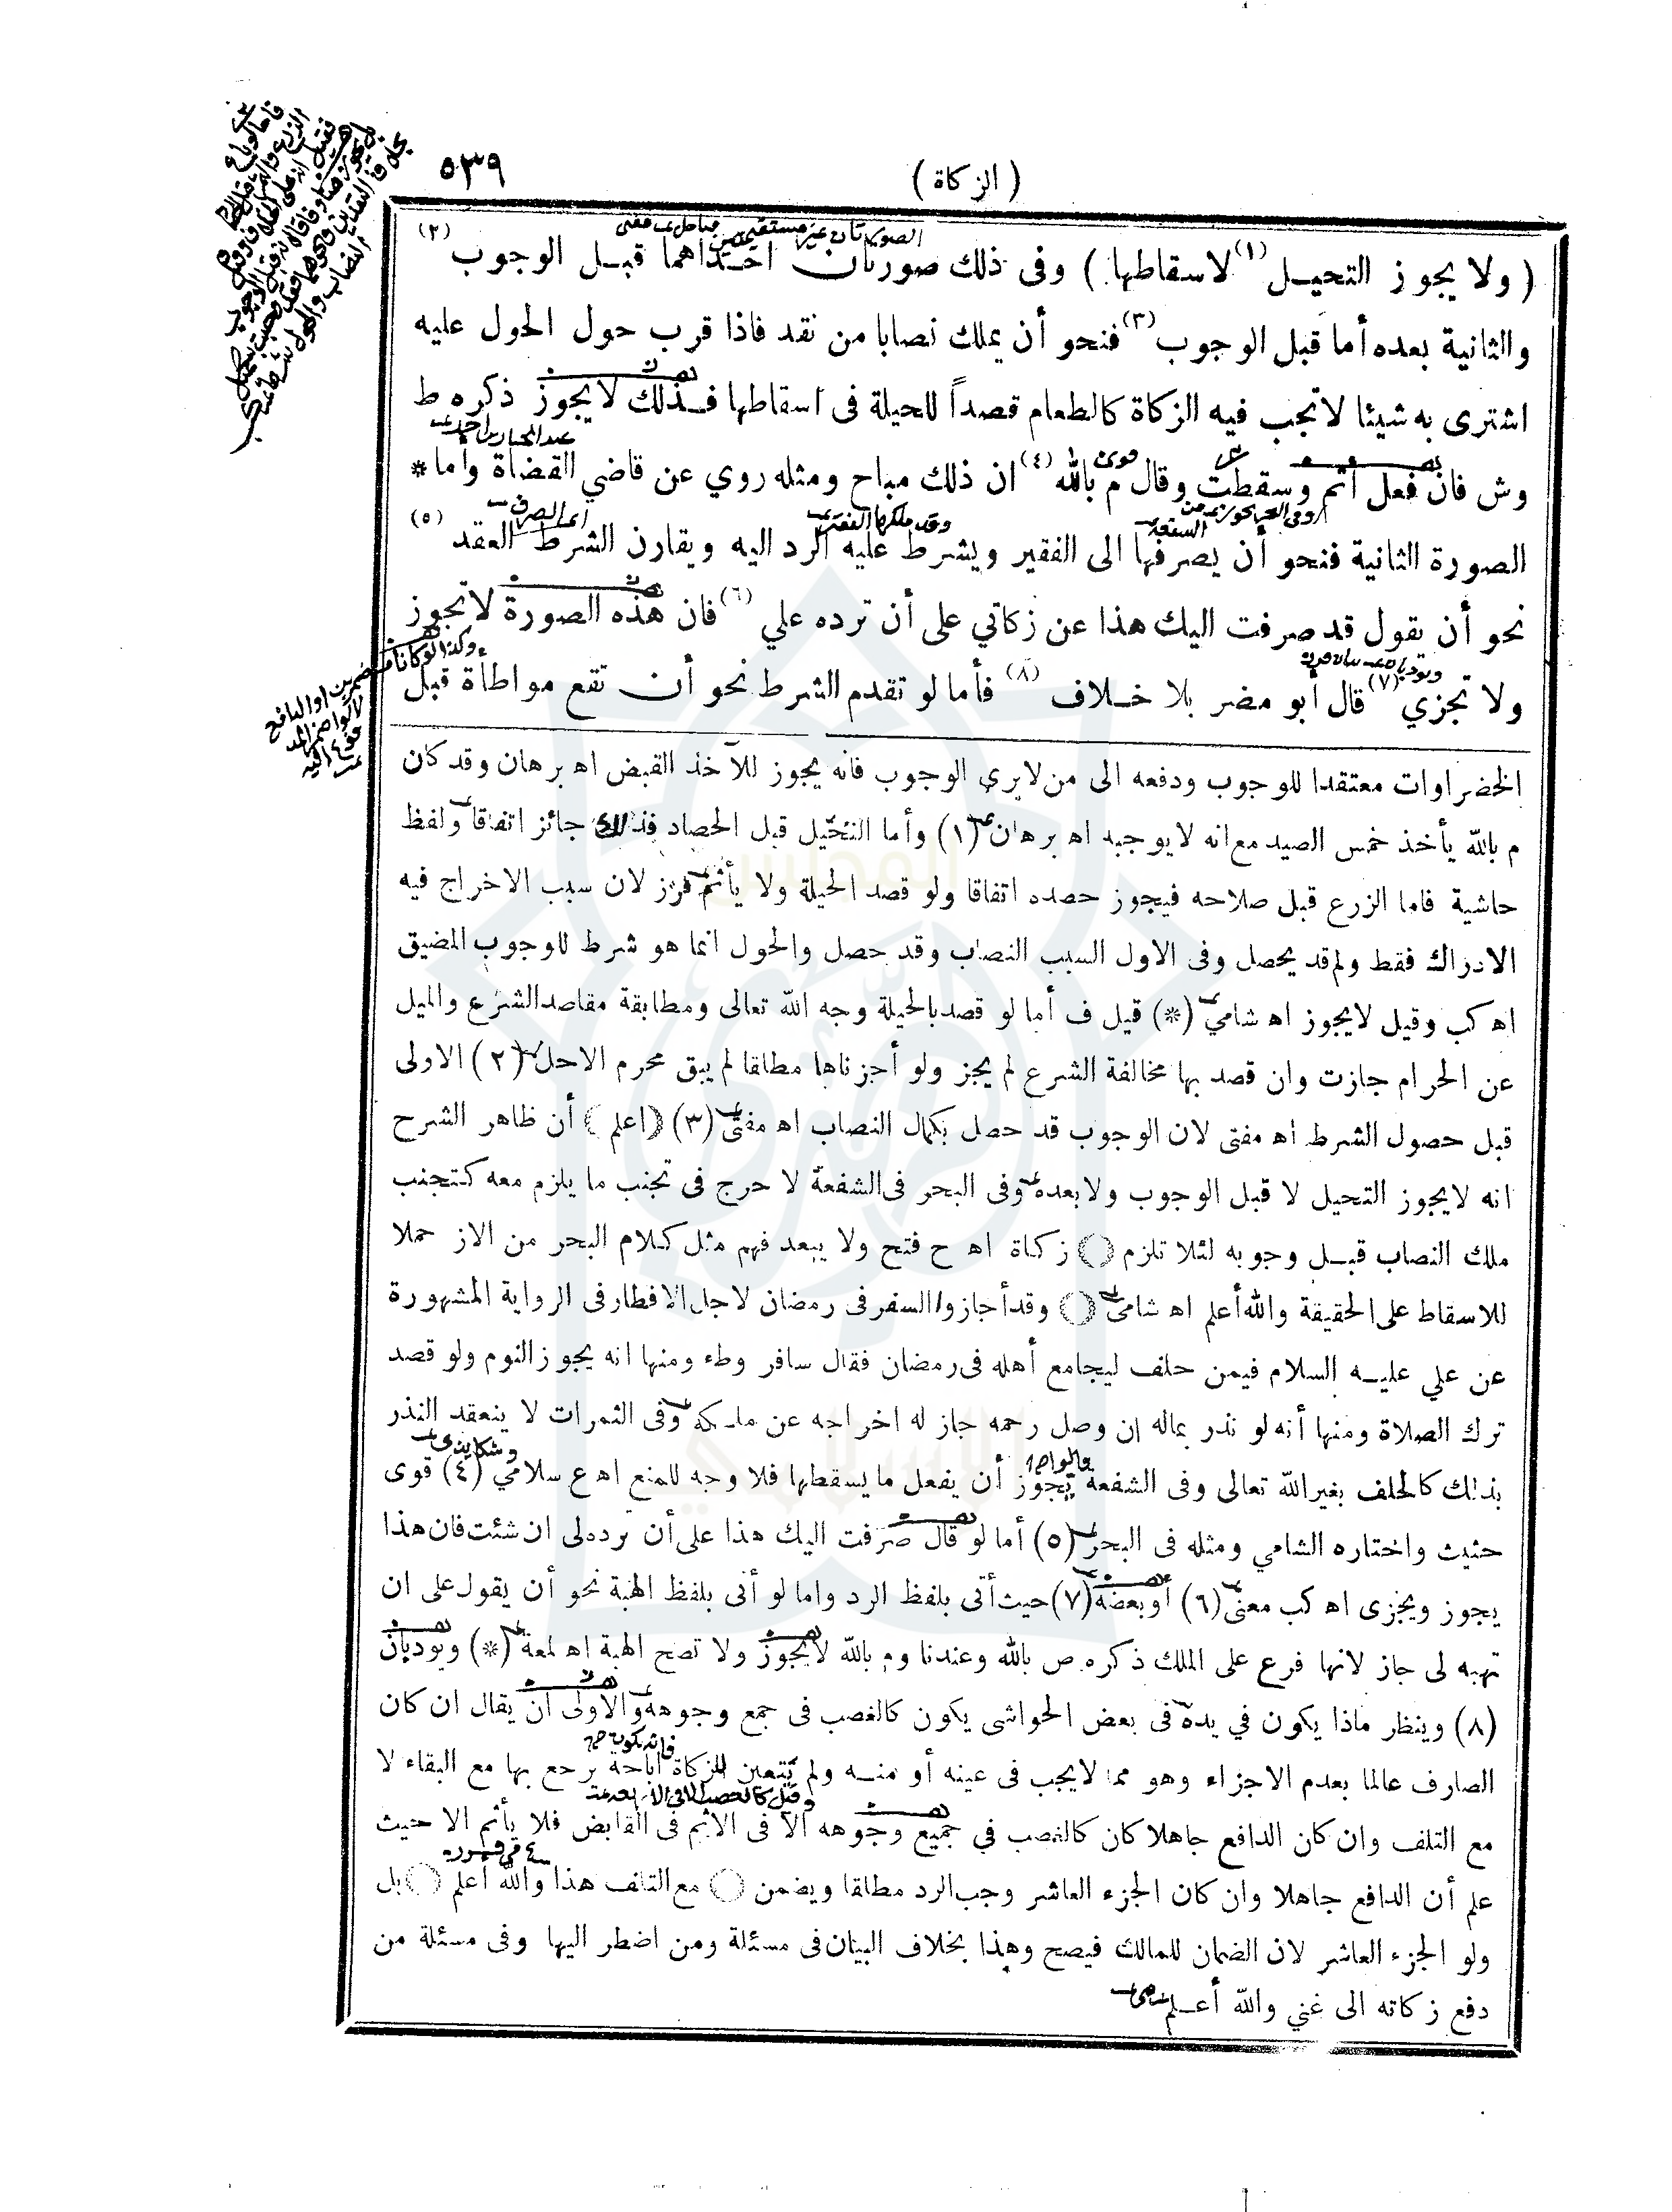 ٥٣٩
( الزكاة )
( ولا يجوز التحيل (١) لاسقاطها ) وفى ذلك صورتان احداهما قبل الوجوب (٢)
والثانية بعده أما قبل الوجوب (٣) فنحو أن يملك نصابا من نقد فاذا قرب حول الحول عليه
اشترى به شيئا لا تجب فيه الزكاة كالطعام قصداً للحيلة فى اسقاطها فذلك لا يجوز ذكره ط
وش فان فعل أثم وسقطت وقال م بالله (٤) ان ذلك مباح ومثله روي عن قاضي القضاة وأما *
الصورة الثانية فنحو أن يصرفها الى الفقير ويشرط عليه الرد اليه ويقارن الشرط العقد (٥)
نحو أن يقول قد صرفت اليك هذا عن زكاتي على أن ترده علي (٦) فان هذه الصورة لا تجوز
ولا تجزي (٧) قال أبو مضر بلا خلاف (٨) فأما لو تقدم الشرط نحو أن تقع مواطاة قبل
الخضراوات معتقدا للوجوب ودفعه الى من لا يرى الوجوب فانه يجوز للآخذ القبض اه برهان وقد كان
م بالله يأخذ خمس الصيد مع انه لا يوجبه اه برهان (١) وأما التحيل قبل الحصاد فذلك جائز اتفاقا ولفظ
حاشية فاما الزرع قبل صلاحه فيجوز حصده اتفاقا ولو قصد الحيلة ولا يأثم قرز لان سبب الاخراج فيه
الادراك فقط ولم قد يحصل وفى الاول السبب النصاب وقد حصل والحول انما هو شرط للوجوب المضيق
اه كب وقيل لا يجوز اه شامي (*) قيل ف أما لو قصد بالحيلة وجه الله تعالى ومطابقة مقاصد الشرع والميل
عن الحرام جازت وان قصد بها مخالفة الشرع لم يجز ولو أجزناها مطلقا لم يبق محرم الا حل (٢) الاولى
قبل حصول الشرط اه مفتى لان الوجوب قد حصل بكمال النصاب اه مفتى (٣) (اعلم) أن ظاهر الشرح
انه لا يجوز التحيل لا قبل الوجوب ولا بعده وفى البحر فى الشفعة لا حرج فى تجنب ما يلزم معه كتجنب
ملك النصاب قبل وجوبه لئلا تلزم () زكاة اه ح فتح ولا يبعد فهم مثل كلام البحر من الاز حملا
للاسقاط على الحقيقة والله أعلم اه شامي () وقد أجازوا السفر فى رمضان لاجل الافطار فى الرواية المشهورة
عن علي عليه السلام فيمن حلف ليجامع أهله فى رمضان فقال سافر وطء ومنها انه يجوز النوم ولو قصد
ترك الصلاة ومنها أنه لو نذر بماله إن وصل رحمه جاز له اخراجه عن ملكه وفى الثمرات لا ينعقد النذر
بذلك كالحلف بغير الله تعالى وفى الشفعة يجوز أن يفعل ما يسقطها فلا وجه للمنع اه ع سلامي (٤) قوى
حثيث واختاره الشامي ومثله فى البحر (٥) أما لو قال صرفت اليك هذا على أن ترده لى ان شئت فان هذا
يجوز ويجزى اه كب معنى (٦) أو بعضه (٧) حيث أتى بلفظ الرد واما لو أتى بلفظ الهبة نحو أن يقول على ان
تهبه لى جاز لانها فرع على الملك ذكره ص بالله وعندنا وم بالله لا يجوز ولا تصح الهبة اه لمعة (*) ويؤدبان
(٨) وينظر ماذا يكون في يده فى بعض الحواشى يكون كالغصب فى جمع وجوهه والاولى أن يقال ان كان
الصارف عالما بعدم الاجزاء وهو مما لا يجب فى عينه أو منه ولم تتعين للزكاة اباحة يرجع بها مع البقاء لا
مع التلف وان كان الدافع جاهلا كان كالغصب في جميع وجوهه الا فى الاثم فى القابض فلا يأثم الا حيث
علم أن الدافع جاهلا وان كان الجزء العاشر وجب الرد مطلقا ويضمن () مع التلف هذا والله أعلم () بل
ولو الجزء العاشر لان الضمان للمالك فيصح وهذا بخلاف البيان فى مسئلة ومن اضطر اليها وفى مسئلة من
دفع زكاته الى غني والله أعلم